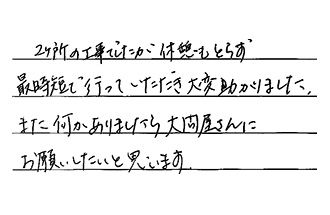 2ヶ所の工事でしたが休憩もとらず
最時短で行っていただき大変助かりました。
また何かありましたら大問屋さんに
お願いしたいと思います。